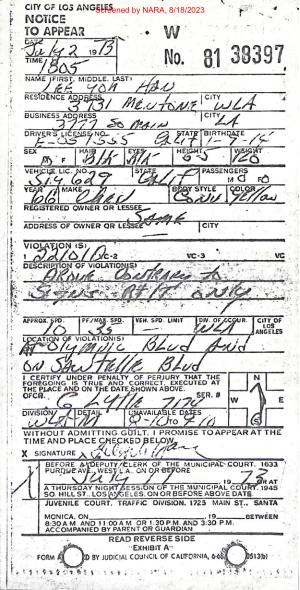 Screened by NARA, 8/18/2023
CITY OF LOS ANGELES
NOTICE
TO APPEAR
W
No. 81 38397
DATE July 2 1973
TIME 1805
NAME (FIRST, MIDDLE, LAST)
LEE YON HAN
RESIDENCE ADDRESS CITY
MENTONE WLA
BUSINESS ADDRESS CITY
3777 SO MAIN LA
DRIVER'S LICENSE NO. STATE BIRTHDATE
SEX HAIR EYES HEIGHT WEIGHT
M F Blk Blk
VEHICLE LIC. NO. STATE PASSENGERS
629 Calif M F
YEAR MAKE BODY STYLE COLOR
66 Chev Conv Yellow
REGISTERED OWNER OR LESSEE
Same
ADDRESS OF OWNER OR LESSEE
VIOLATION (S)
1 22101D VC-2 VC-3 VC
DESCRIPTION OF VIOLATION(S)
Drove Contrary to
Signs R/T only
APPROX. SPD. PF/MAX. SPD. VEH. SPD. LIMIT DIV. OF OCCUR. CITY OF
10 35 — WLA LOS ANGELES
LOCATION OF VIOLATION(S)
AT Olympic Blvd And
ON Sawtelle Blvd
I CERTIFY UNDER PENALTY OF PERJURY THAT THE
FOREGOING IS TRUE AND CORRECT. EXECUTED AT
THE PLACE AND ON THE DATE SHOWN ABOVE.
OFCR. SER. #
DIVISION DETAIL UNAVAILABLE DATES
N
S
WITHOUT ADMITTING GUILT, I PROMISE TO APPEAR AT THE
TIME AND PLACE CHECKED BELOW.
X SIGNATURE
BEFORE A DEPUTY/CLERK OF THE MUNICIPAL COURT, 1633
PURDUE AVE., WEST L.A. ON OR BEFORE
July 19 73 OR AT
A THURSDAY NIGHT SESSION OF THE MUNICIPAL COURT, 1945
SO. HILL ST. LOS ANGELES, ON OR BEFORE ABOVE DATE
JUVENILE COURT, TRAFFIC DIVISION, 1725 MAIN ST., SANTA
MONICA, ON 19 BETWEEN
8:30 A.M. AND 11:00 A.M. OR 1:30 P.M. AND 3:30 P.M.
ACCOMPANIED BY PARENT OR GUARDIAN
READ REVERSE SIDE
"EXHIBIT A"
FORM BY JUDICIAL COUNCIL OF CALIFORNIA, 0513(b)